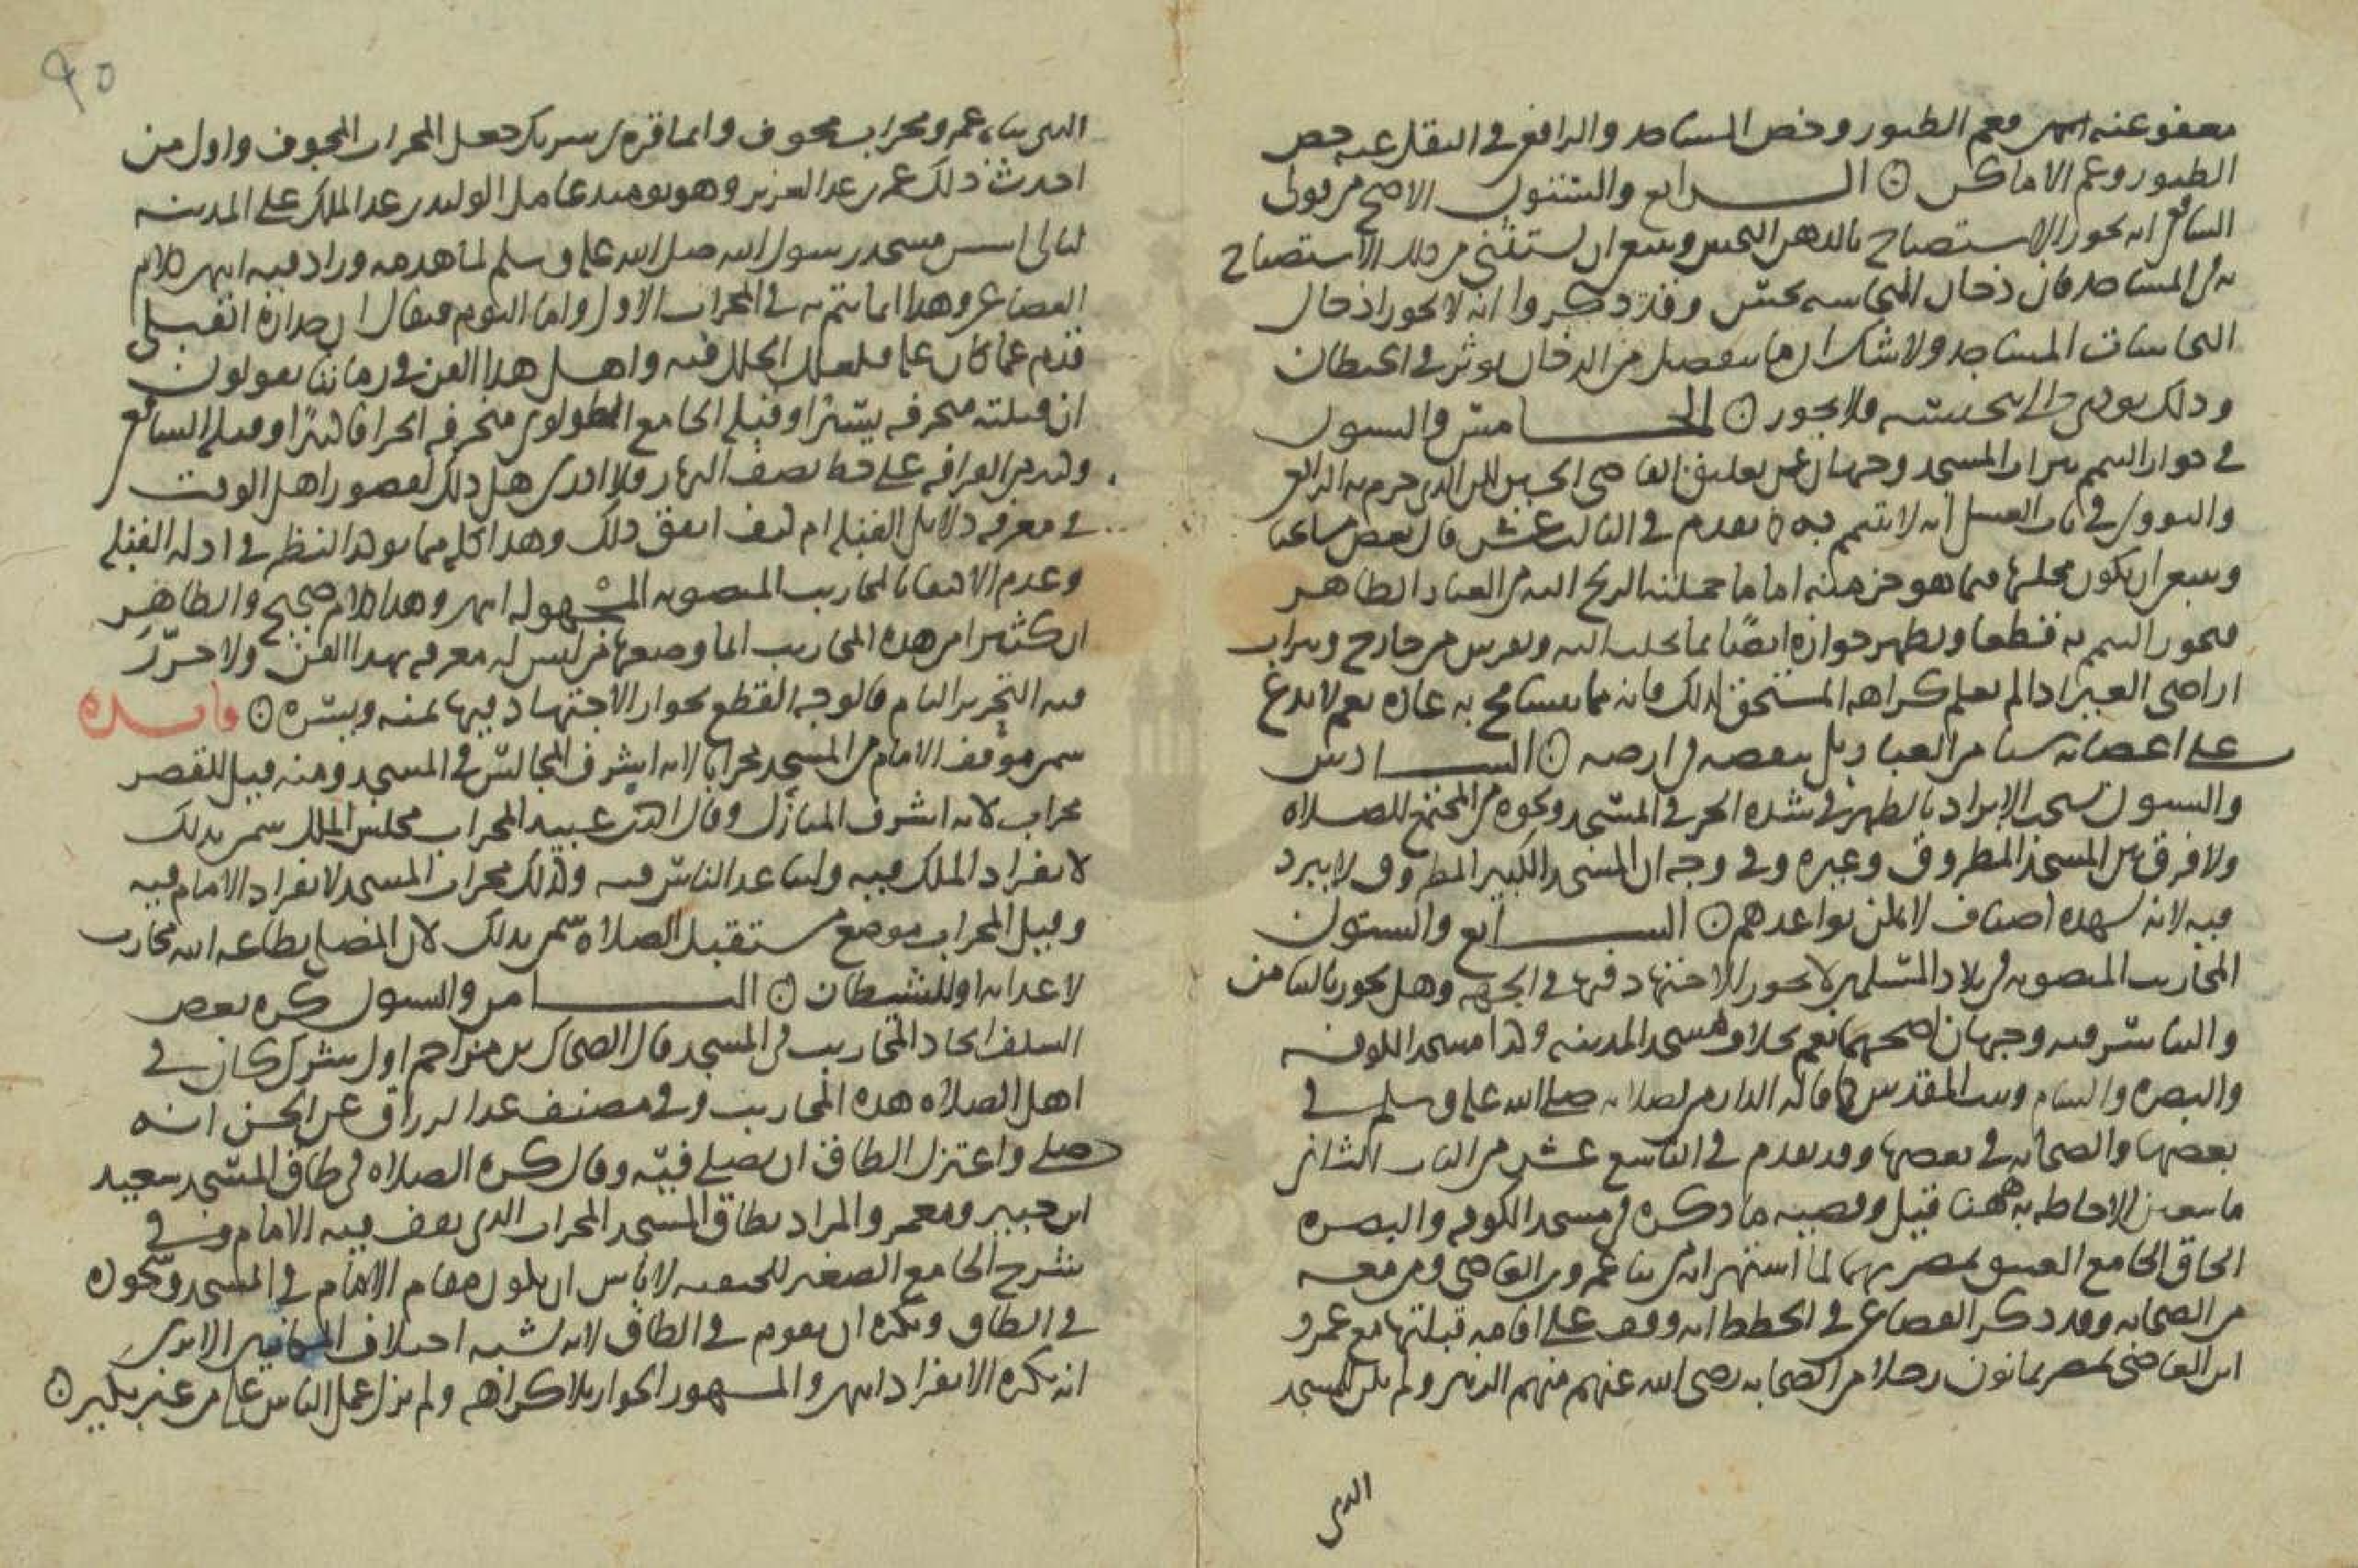 معفو عنه انتهى فعم الطيور وخص المساجد والرافعي في النقل عنه خص
الطيور وعم الاماكن ⊙ الرابع والستون الاصح من قولي
الشافعي انه يجوز الاستصباح بالدهن النجس وينبغي ان يستثنى من ذلك الاستصباح
به في المساجد فان دخان النجاسة نجس وقد ذكروا انه لا يجوز ادخال
النجاسات المساجد ولا شك ان ما ينفصل من الدخان يوثر في الحيطان
وذلك يودي الى تنجيسه فلا يجوز ⊙ الخامس والستون
في جواز التيمم بتراب المسجد وجهان عن تعليق القاضي الحسين لكن الذي جزم به الرافعي
والنووي في باب الغسل انه لا يتيمم به وتقدم في الثالث عشر قال بعض مشايخنا
وينبغي ان يكون محلهما فيما هو جزء منه اما ما حملته الريح اليه من الغبار الظاهر
فيجوز التيمم به قطعا ويظهر جوازه ايضا بما يجلب اليه ويفرش من خارج وبتراب
اراضي الغير اذا لم يعلم كراهة المستحق لذلك فانه مما يتسامح به عادة نعم لا يدع
على اعضائه شيئا من الغبار بل ينفضه في ارضه ⊙ السادس
والستون يستحب الابراد بالظهر في شدة الحر في المسجد ونحوه من المجتمع للصلاة
ولا فرق بين المسجد المطروق وغيره وفي وجه ان المسجد الكبير المطروق لا يبرد
فيه لانه يشهده اصناف لا يمكن تواعدهم ⊙ السابع والستون
المحاريب المنصوبة في بلاد المسلمين لا يجوز الاجتهاد فيها في الجهة وهل يجوز بالتيامن
والتياسر فيه وجهان اصحهما نعم بخلاف مسجد المدينة وكذا مسجد الكوفة
والبصرة والشام وبيت المقدس كما قاله الدارمي لصلاته صلى الله عليه وسلم في
بعضها والصحابة في بعضها وقد تقدم في التاسع عشر من الباب الثاني
ما يتعين الاحاطة به ههنا قيل وقضية ما ذكره في مسجد الكوفة والبصرة
الحاق الجامع العتيق بمصر بهما لما اشتهر انه من بناء عمرو بن العاصي ومن معه
من الصحابة وقد ذكر القضاعي في الخطط انه وقف على اقامة قبلتها مع عمرو
ابن العاصي بمصر ثمانون رجلا من الصحابة رضي الله عنهم منهم الزبير ولم يكن للمسجد
الذي
٩٥
الذي بناه عمرو محراب مجوف وانما قرة بن شريك جعل المحراب المجوف واول من
احدث ذلك عمر بن عبد العزيز وهو يومئذ عامل الوليد بن عبد الملك على المدينة
ليالي اسس مسجد رسول الله صلى الله عليه وسلم لما هدمه وزاد فيه انتهى كلام
القضاعي وهذا انما يتم به في المحراب الاول واما اليوم فيقال ان جداره القبلي
قدم عما كان عليه فلعل الخلل فيه واهل هذا الفن في زماننا يقولون
ان قبلته منحرفه يسيرا وقبلة الجامع الطولوني منحرفه انحرافا كثيرا وقبلة الشافعي
وكثير من القرافة على خط نصف النهار فلا ادري هل ذلك لقصور اهل الوقت
في معرفة دلائل القبلة ام كيف اتفق ذلك وهذا كله مما يوكد النظر في ادلة القبلة
وعدم الاكتفاء بالمحاريب المنصوبة المجهولة انتهى وهذا كلام صحيح والظاهر
ان كثيرا من هذه المحاريب انما وضعها من ليس له معرفة بهذا الفن ولا حرر
فيه التحرير التام فالوجه القطع بجواز الاجتهاد فيها يمنه ويسره ⊙ فائدة
سمي موقف الامام من المسجد محرابا لانه اشرف المجالس في المسجد ومنه قيل للقصر
محراب لانه اشرف المنازل وقال ابو عبيد المحراب مجلس الملك سمي بذلك
لانفراد الملك فيه وتباعد الناس منه وكذلك محراب المسجد لانفراد الامام فيه
وقيل المحراب موضع مستقبل الصلاة سمي بذلك لان المصلي بطاعة الله محارب
لاعدائه او للشيطان ⊙ الثامن والستون كره بعض
السلف اتخاذ المحاريب في المسجد قال الضحاك بن مزاحم اول شرك كان في
اهل الصلاة هذه المحاريب وفي مصنف عبد الرزاق عن الحسن انه
صلى واعتزل الطاق ان يصلي فيه وقال كره الصلاة في طاق المسجد سعيد
ابن جبير ومعمر والمراد بطاق المسجد المحراب الذي يقف فيه الامام وفي
شرح الجامع الصغير للحنفية لا باس ان يكون مقام الامام في المسجد وسجوده
في الطاق ويكره ان يقوم في الطاق لانه يشبه اختلاف المكانين الا ترى
انه يكره الانفراد انتهى والمشهور الجواز بلا كراهة ولم يزل عمل الناس عليه من غير نكير ⊙